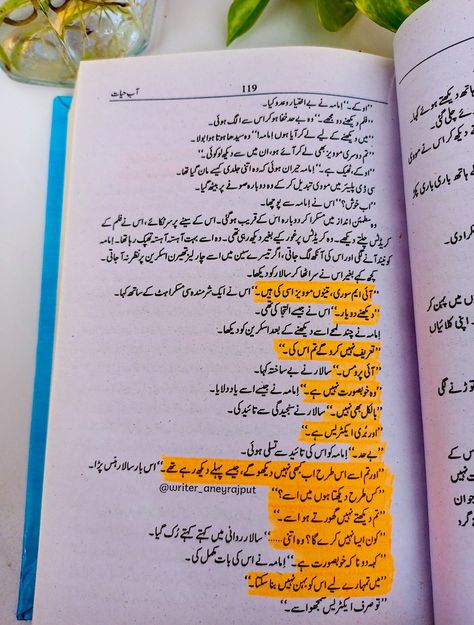 119
آبِ حیات
"اوکے۔" امامہ نے بے اختیار وعدہ کیا۔
"فلم دیکھنے دو مجھے۔" وہ بے حد خفا ہو کر اس سے الگ ہوئی۔
"میں دیکھنے کے لیے لے کر آیا ہوں امامہ!" وہ سیدھا ہوتا ہوا بولا۔
"تم دوسری موویز بھی لے کر آئے ہو، ان میں سے دیکھ لو کوئی۔"
"اوکے، ٹھیک ہے۔" امامہ حیران ہوئی کہ وہ اتنی جلدی کیسے مان گیا تھا۔
سی ڈی پلیئر میں مووی تبدیل کر کے وہ دوبارہ صوفے پر بیٹھ گیا۔
"اب خوش؟" اس نے امامہ سے پوچھا۔
وہ مطمئن انداز میں مسکرا کر دوبارہ اس کے قریب ہو گئی۔ اس کے سینے پر سر ٹکائے، اس نے فلم کے
کریڈٹس چلتے دیکھے۔ وہ کریڈٹس پر غور کیے بغیر دیکھ رہی تھی۔ وہ اسے بہت آہستہ آہستہ تھپک رہا تھا۔ امامہ
کو نیند آنے لگی اور اس کی آنکھ لگ جاتی، اگر تیسرے سین میں اسے چارلیز تھیرن اسکرین پر نظر نہ آ جاتی۔
کچھ کہے بغیر اس نے سر اٹھا کر سالار کو دیکھا۔
"آئی ایم سوری، تینوں موویز اسی کی ہیں۔" اس نے ایک شرمندہ سی مسکراہٹ کے ساتھ کہا۔
"دیکھنے دو یار۔" اس نے جیسے التجا کی تھی۔
امامہ نے چند لمحے اسے دیکھنے کے بعد اسکرین کو دیکھا۔
"تعریف نہیں کرو گے تم اس کی۔"
"آئی پرومس۔" سالار نے بے ساختہ کہا۔
"وہ خوبصورت نہیں ہے۔" امامہ نے جیسے اسے یاد دلایا۔
"بالکل بھی نہیں۔" سالار نے سنجیدگی سے تائید کی۔
"اور بُری ایکٹریس ہے۔"
"بے حد۔" امامہ کو اس کی تائید سے تسلی ہوئی۔
"اور تم اسے اس طرح اب کبھی نہیں دیکھو گے، جیسے پہلے دیکھ رہے تھے۔" اس بار سالار ہنس پڑا۔
@writer_aneyrajput
"کس طرح دیکھتا ہوں میں اسے؟"
"تم دیکھتے نہیں گھورتے ہو اسے۔"
"کون ایسا نہیں کرے گا؟ وہ اتنی ......" سالار روانی میں کہتے کہتے رُک گیا۔
"کہہ دو نا کہ خوبصورت ہے۔" امامہ نے اس کی بات مکمل کی۔
"میں تمہارے لیے اس کو بہن نہیں بنا سکتا۔"
"تو صرف ایکٹریس سمجھو اسے۔"